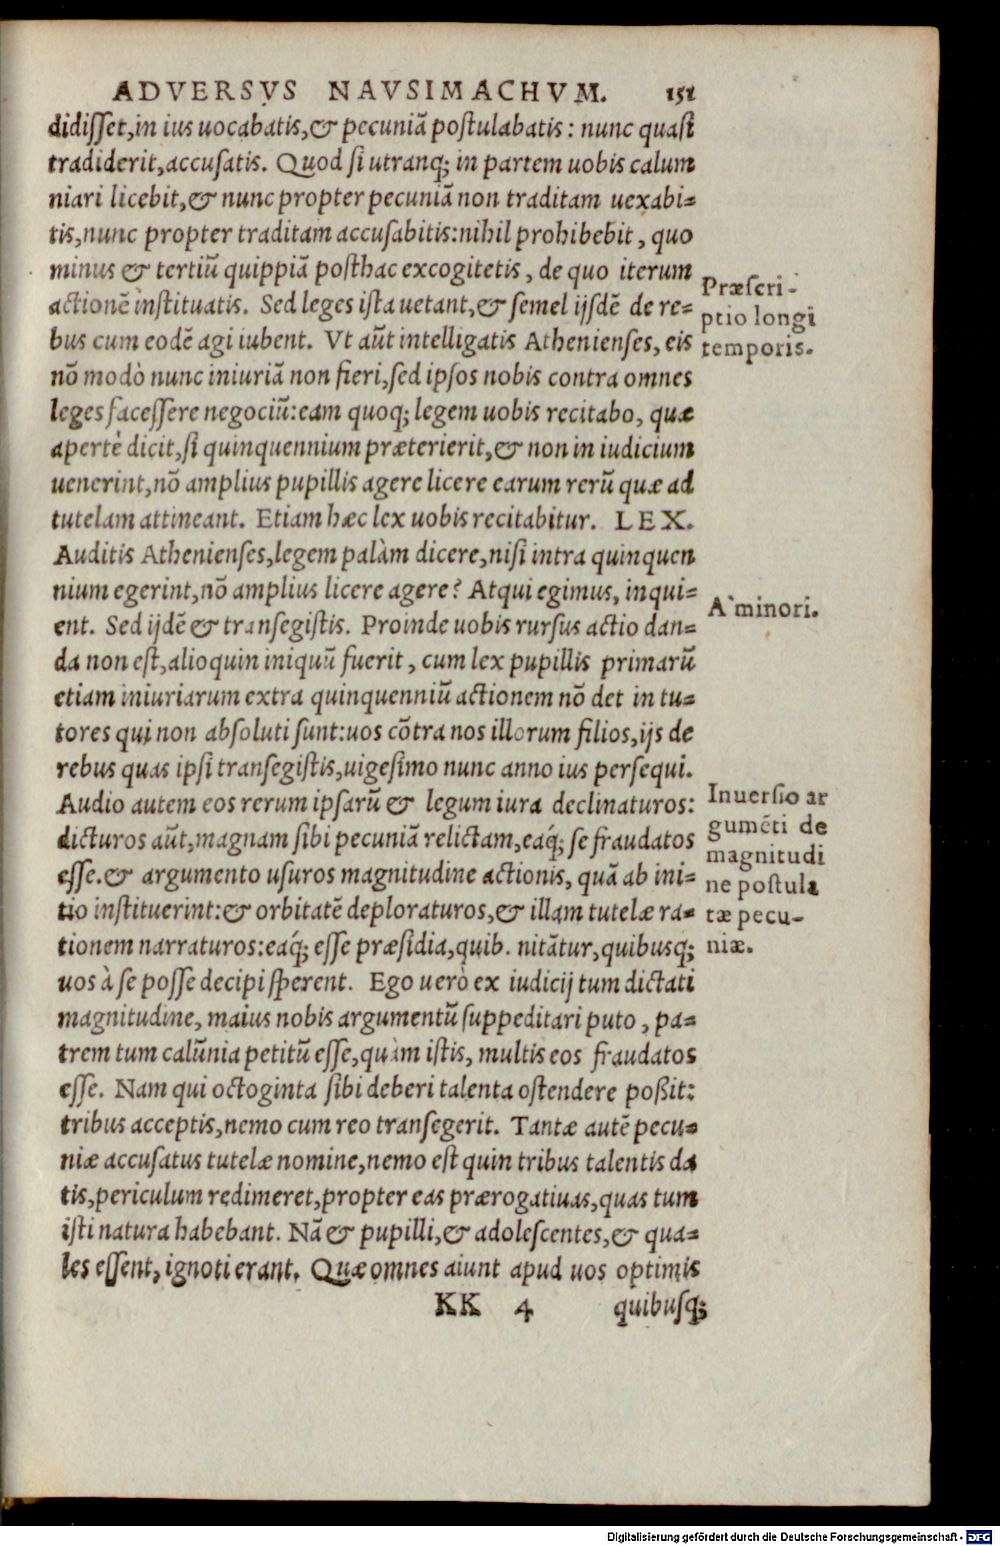 ADVERSVS NAVSIMACHVM. 151
didisset,in ius uocabatis,& pecuniā postulabatis: nunc quasi
tradiderit,accusatis. Quod si utranq; in partem uobis calum
niari licebit,& nunc propter pecuniā non traditam uexabi=
tis,nunc propter traditam accusabitis:nihil prohibebit, quo
minus & tertiū quippiā posthac excogitetis, de quo iterum
actionē instituatis. Sed leges ista uetant,& semel ijsdē de re=
bus cum eodē agi iubent. Vt aūt intelligatis Athenienses, eis
nō modò nunc iniuriā non fieri,sed ipsos nobis contra omnes
leges facessere negociū:eam quoq; legem uobis recitabo, quæ
apertè dicit,si quinquennium præterierit,& non in iudicium
uenerint,nō amplius pupillis agere licere earum rerū quæ ad
tutelam attineant. Etiam hæc lex uobis recitabitur. LEX.
Auditis Athenienses,legem palàm dicere,nisi intra quinquen
nium egerint,nō amplius licere agere? Atqui egimus, inqui=
ent. Sed ijdē & transegistis. Proinde uobis rursus actio dan=
da non est,alioquin iniquū fuerit, cum lex pupillis primarū
etiam iniuriarum extra quinquenniū actionem nō det in tu=
tores qui non absoluti sunt:uos cōtra nos illorum filios,ijs de
rebus quas ipsi transegistis,uigesimo nunc anno ius persequi.
Audio autem eos rerum ipsarū & legum iura declinaturos:
dicturos aūt,magnam sibi pecuniā relictam,eaq́; se fraudatos
esse.& argumento usuros magnitudine actionis, quā ab ini=
tio instituerint:& orbitatē deploraturos,& illam tutelæ ra=
tionem narraturos:eaq́; esse præsidia,quib. nitātur,quibusq;
uos à se posse decipi sperent. Ego uerò ex iudicij tum dictati
magnitudine, maius nobis argumentū suppeditari puto, pa=
trem tum calūnia petitū esse,quàm istis, multis eos fraudatos
esse. Nam qui octoginta sibi deberi talenta ostendere poßit:
tribus acceptis,nemo cum reo transegerit. Tantæ autē pecu=
niæ accusatus tutelæ nomine,nemo est quin tribus talentis da
tis,periculum redimeret,propter eas prærogatiuas,quas tum
isti natura habebant. Nā & pupilli,& adolescentes,& qua=
les essent, ignoti erant. Quæ omnes aiunt apud uos optimis
KK 4 quibusq;
Præscri-
ptio longi
temporis.
A`minori.
Inuersio ar
gumēti de
magnitudi
ne postula
tæ pecu-
niæ.
Digitalisierung gefördert durch die Deutsche Forschungsgemeinschaft - DFG